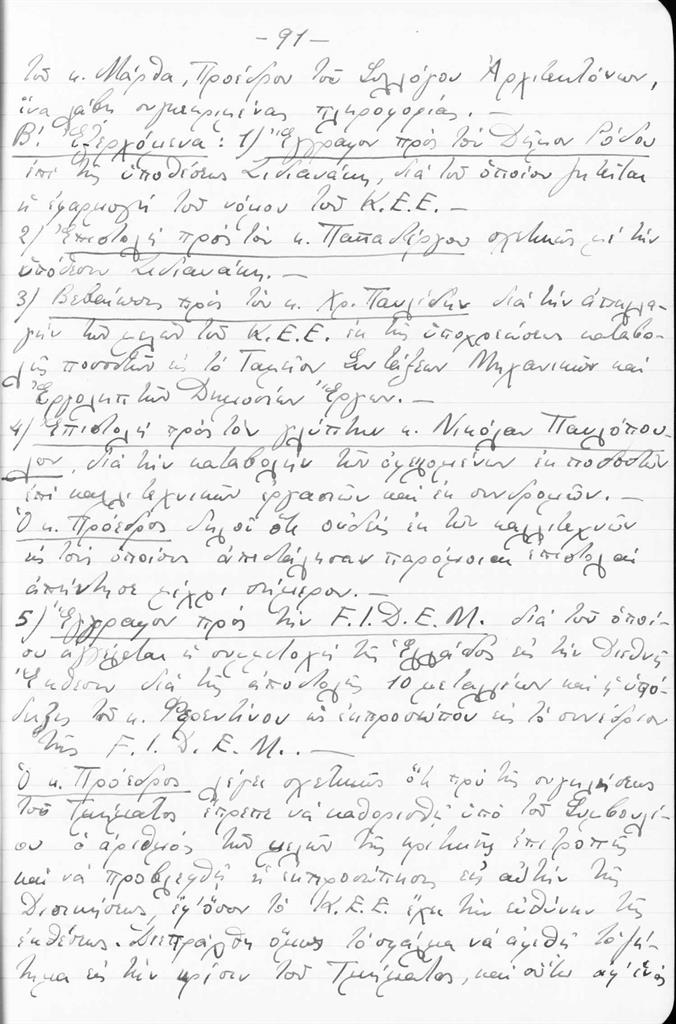 - 91 -
τοῦ κ. Μάρθα, Προέδρου τοῦ Συλλόγου Ἀρχιτεκτόνων,
ἵνα λάβῃ συγκεκριμένας πληροφορίας. -
Β! Ἐξερχόμενα: 1) Ἔγγραφον πρὸς τὸν Δῆμον Ρόδου
ἐπὶ τῆς ὑποθέσεως Σιδιανάκη, διὰ τοῦ ὁποίου ζητεῖται
ἡ ἐφαρμογὴ τοῦ νόμου τοῦ Κ.Ε.Ε. -
2) Ἐπιστολὴ πρὸς τὸν κ. σχετικῶς μὲ τὴν
ὑπόθεσιν Σιδιανάκη. -
3) Βεβαίωσις πρὸς τὸν κ. Χρ. Παυλίδην διὰ τὴν ἀπαλλα-
γὴν τῶν μελῶν τοῦ Κ.Ε.Ε. ἐκ τῆς ὑποχρεώσεως καταβο-
λῆς ποσοστῶν εἰς τὸ Ταμεῖον Συντάξεων Μηχανικῶν καὶ
Ἐργοληπτῶν Δημοσίων Ἔργων. -
4) Ἐπιστολὴ πρὸς τὸν γλύπτην κ. Νικόλαον Παυλόπου-
λον, διὰ τὴν καταβολὴν τῶν ὀφειλομένων ἐκ ποσοστῶν
ἐπὶ καλλιτεχνικῶν ἐργασιῶν καὶ ἐκ συνδρομῶν. -
Ὁ κ. Πρόεδρος δηλοῖ ὅτι οὐδεὶς ἐκ τῶν καλλιτεχνῶν
εἰς τοὺς ὁποίους ἀπεστάλησαν παρόμοιαι ἐπιστολαὶ
ἀπήντησε μέχρι σήμερον. -
5) Ἔγγραφον πρὸς τὴν F.I.D.E.M. διὰ τοῦ ὁποί-
ου ἀγγέλεται ἡ συμμετοχὴ τῆς Ἑλλάδος εἰς τὴν Διεθνῆ
Ἔκθεσιν διὰ τῆς ἀποστολῆς 10 μεταλλίων καὶ ἡ ὑπό-
δειξις τοῦ κ. Φερεντίνου ὡς ἐκπροσώπου εἰς τὸ συνέδριον
τῆς F.I.D.E.M.. -
Ὁ κ. Πρόεδρος λέγει σχετικῶς ὅτι πρὸ τῆς συγκλήσεως
τοῦ Τμήματος ἔπρεπε νὰ καθορισθῇ ὑπὸ τοῦ Συμβουλί-
ου ὁ ἀριθμὸς τῶν μελῶν τῆς κριτικῆς ἐπιτροπῆς
καὶ νὰ προβλεφθῇ ἡ ἐκπροσώπησις εἰς αὐτὴν τῆς
Διοικήσεως, ἐφ' ὅσον τὸ Κ.Ε.Ε. ἔχει τὴν εὐθύνην τῆς
ἐκθέσεως. Διεπράχθη ὅμως τὸ σφάλμα νὰ ἀφεθῇ τὸ ζή-
τημα εἰς τὴν κρίσιν τοῦ Τμήματος, καὶ οὕτω ἀφ' ἑνὸς